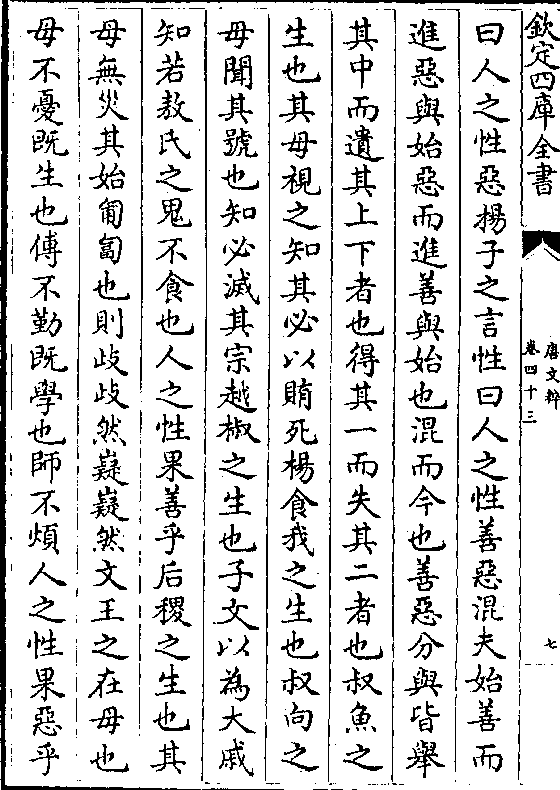 欽定四庫全書
唐文粹
卷四十三
七
曰人之性惡揚子之言性曰人之性善惡混夫始善而
進惡與始惡而進善與始也混而今也善惡分與皆舉
其中而遺其上下者也得其一而失其二者也叔魚之
生也其母視之知其必以賄死楊食我之生也叔向之
母聞其號也知必滅其宗越椒之生也子文以為大戚
知若敖氏之鬼不食也人之性果善乎后稷之生也其
母無災其始匍匐也則歧歧然嶷嶷然文王之在母也
母不憂既生也傅不勤既學也師不煩人之性果惡乎